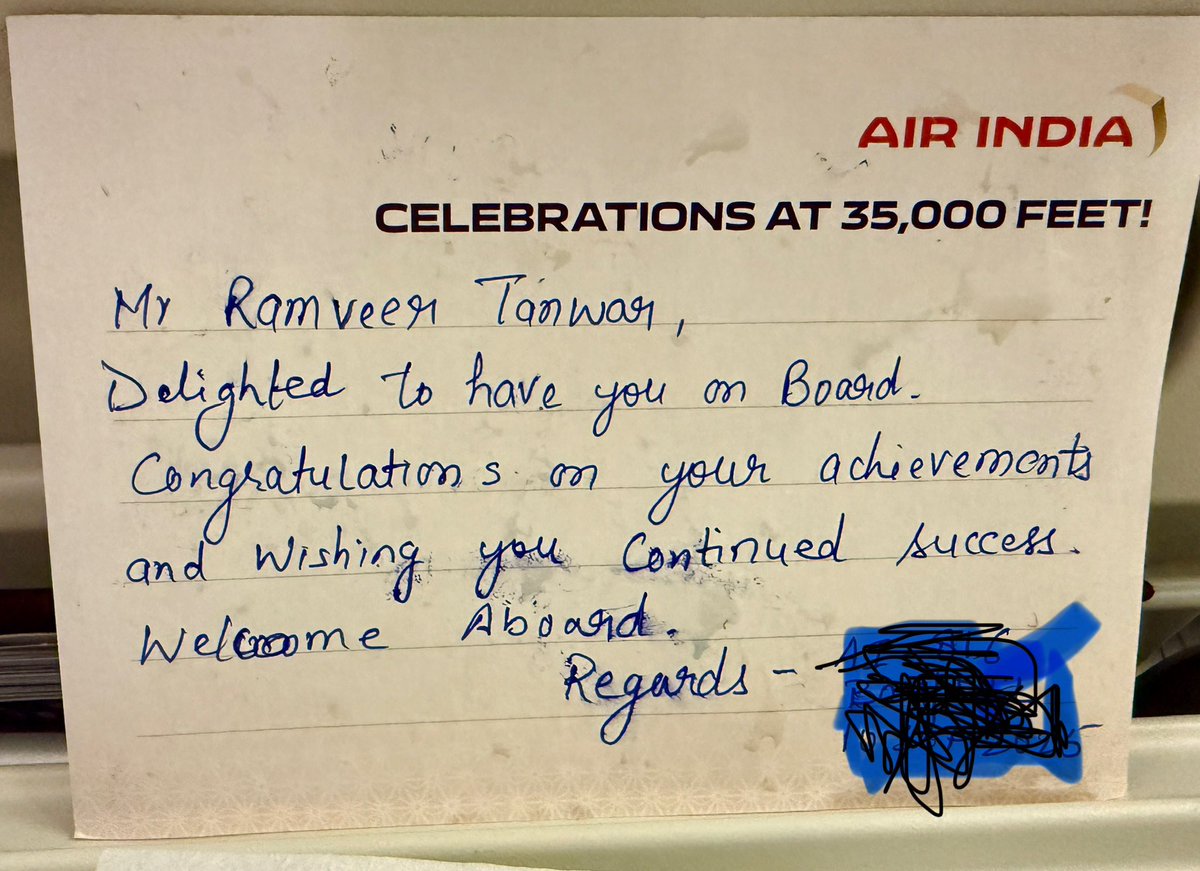 AIR INDIA
CELEBRATIONS AT 35,000 FEET!
Mr Ramveer Tanwar,
Delighted to have you on Board.
Congratulations on your achievements
and Wishing you Continued success.
Welcome Aboard.
Regards -